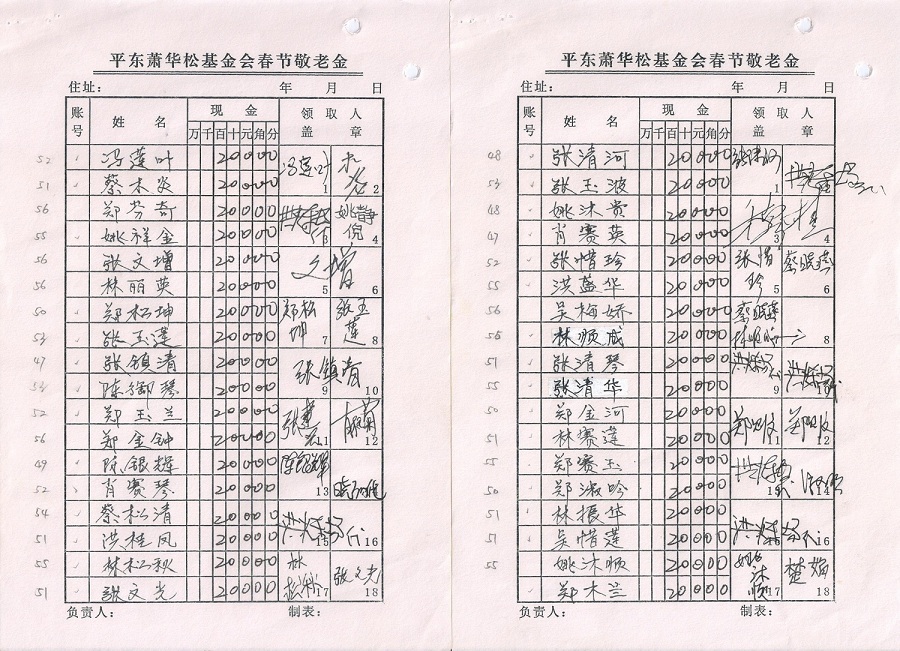 平东萧华松基金会春节敬老金
住址： 年 月 日
账号 姓 名 现 金 领 取 人
万 千 百 十 元 角 分 盖 章
52 冯莲叶 20000 冯莲叶 1
51 蔡木炎 20000 2
56 郑芬奇 20000 3
55 姚祥金 20000 姚静倪 4
56 张文增 20000 文增 5
56 林丽英 20000 6
50 郑松坤 20000 郑松坤 7
54 张玉莲 20000 张玉莲 8
47 张镇清 20000 张镇清 9
54 陈御琴 20000 10
52 郑玉兰 20000 11
56 郑金钟 20000 12
49 陈银辉 20000 陈银辉 13
52 肖赛琴 20000 14
54 蔡松清 20000 15
51 洪桂凤 20000 16
55 林松秋 20000 17
51 张文光 20000 张文光 18
负责人： 制表：
平东萧华松基金会春节敬老金
住址： 年 月 日
账号 姓 名 现 金 领 取 人
万 千 百 十 元 角 分 盖 章
48 张清河 20000 1
54 张玉波 20000 2
48 姚沐贵 20000 3
47 肖赛英 20000 4
52 张惜珍 20000 张惜珍 5
55 洪蕴华 20000 6
50 吴梅娇 20000 7
55 林顺成 20000 8
51 张清琴 20000 9
55 张清华 20000 10
50 郑金河 20000 11
51 林赛莲 20000 12
55 郑赛玉 20000 13
50 郑淑吟 20000 14
51 林振华 20000
51 吴惜莲 20000 16
55 姚沐顺 20000 姚沐顺 17
郑木兰 20000 18
负责人： 制表：